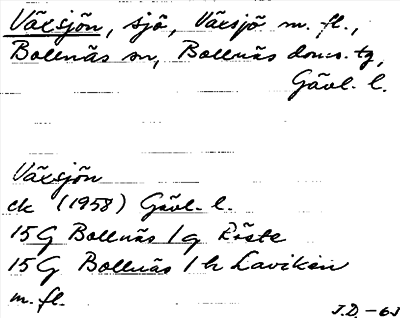 Växsjön, sjö, Växsjö m. fl.,
Bollnäs sn, Bollnäs doms. tg,
Gävl. l.
Växsjön
ek (1958) Gävl. l.
15G Bollnäs / g Röste
15G Bollnäs / h Laviken
m. fl.
J.D. -63